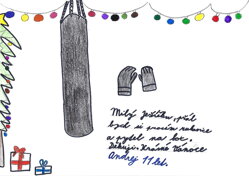 Milý Ježíšku, přál
bych si prosím rukavice
a pytel na box.
Děkuji. Krásné Vánoce
Andrej 11 let.